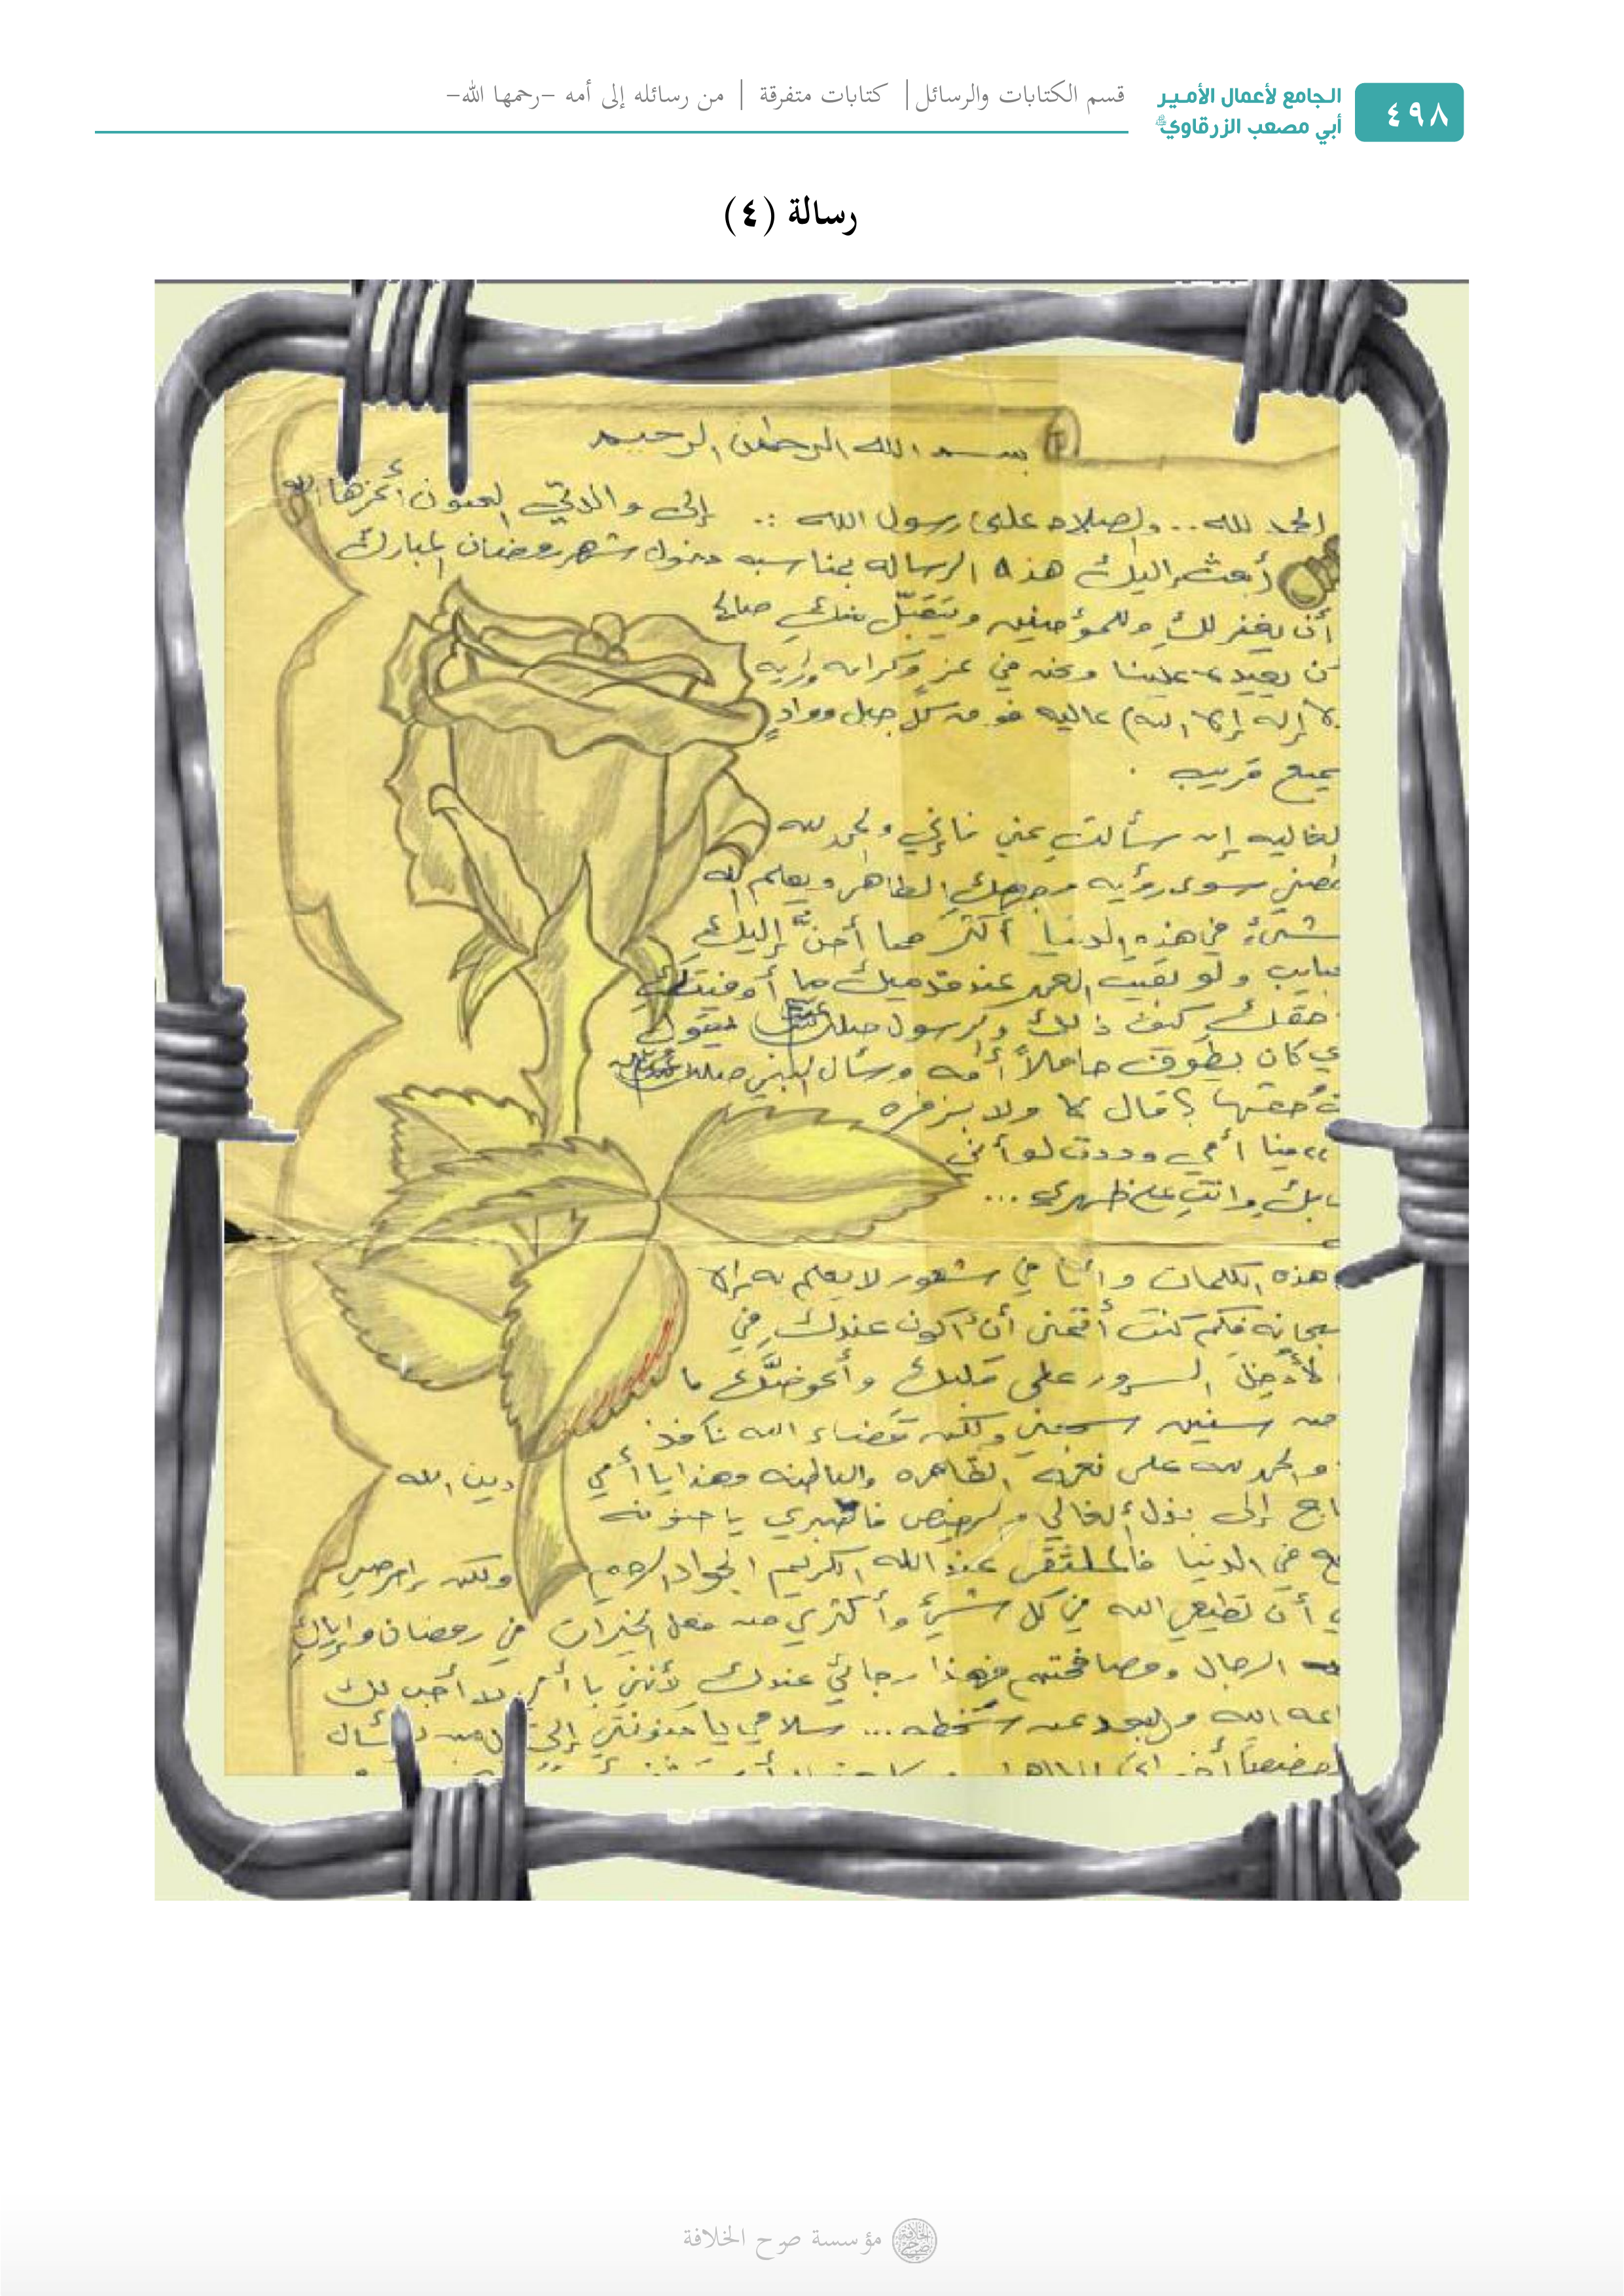 ٤٩٨
الجامع لأعمال الأمير
أبي مصعب الزرقاوي
قسم الكتابات والرسائل | كتابات متفرقة | من رسائله إلى أمه -رحمها الله-
رسالة (٤)
بسم الله الرحمن الرحيم
الحمد لله .. والصلاه على رسول الله :. إلى والدتي الحنون أعزها الله
أبعث إليك هذه الرساله بمناسبه دخول شهر رمضان المبارك
أن يغفر لكِ وللمؤمنين ويتقبّل منكِ صالح
يعيده علينا ونحن في عز وكرامه وراية
لا إله إلا الله) عاليه فوق كل جبل ووادٍ
سميع قريب .
الغاليه إن سألتِ عني فإني ولحمد لله
سوى رؤيه وجهكِ الطاهر ويعلم الله
شيء في هذه الدنيا أكثر مما أحنّ إليكِ
ولو بقيت العمر عند قدميك ما أوفيتكِ
حقك كيف ذلك والرسول صلى يقول
كان يطوف حاملاً أمه وسأل النبي صلى
حقها ؟ قال لا ولا بزفره
فيا أمي وددت لو أني
وانتِ على ظهري ...
هذه الكلمات وأنا في شعور لا يعلم به إلا
فكم كنت أتمنى أن أكون عندك في
لأدخل السرور على قلبك وأعوضكِ ما
من سنين سجني ولكن قضاء الله نافذ
والحمد لله على نعمه الظاهره والباطنه وهذا يا أمي دين الله
إلى بذل الغالي والرخيص فاصبري يا حنونه
في الدنيا فالملتقى عند الله الكريم الجواد ولكن احرصي
أن تطيعي الله في كل شيء وأكثري من فعل الخيرات في رمضان وإياك
الرجال ومصافحتهم فهذا رجائي عندك لأنني يا أمي لا أحب لك
الله والبعد عن سخطه ... سلامي يا حنونتي إلى يسأل
مؤسسة صرح الخلافة